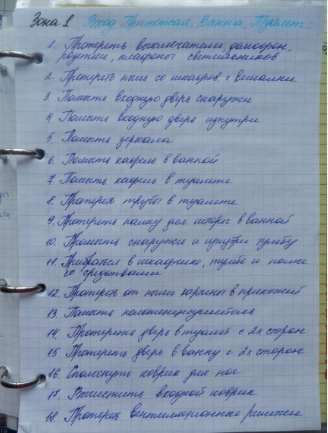 Зона 1 Вход Прихожая, Ванна, Туалет:
1. Протереть выключатели, домофон,
розетки, плафоны светильников
2. Протереть пыль со шкафов с вешалки
3. Помыть входную дверь снаружи
4 Помыть входную дверь изнутри
5. Помыть зеркала
6. Помыть кафель в ванной
7 Помыть кафель в туалете
8. Протереть трубы в туалете
9. Протереть палку для шторы в ванной
10. Промыть снаружи и изнутри тумбу
11. Прибраться в шкафчике, тумбе и полке
со средствами
12. Протереть от пыли картины в прихожей
13. Помыть полотенцесушитель
14. Протереть дверь в туалет с 2х сторон
15 Протереть дверь в ванну с 2х сторон
16. Сполоснуть коврик для ног
17. Вычистить входной коврик
18. Протереть вентиляционные решетки